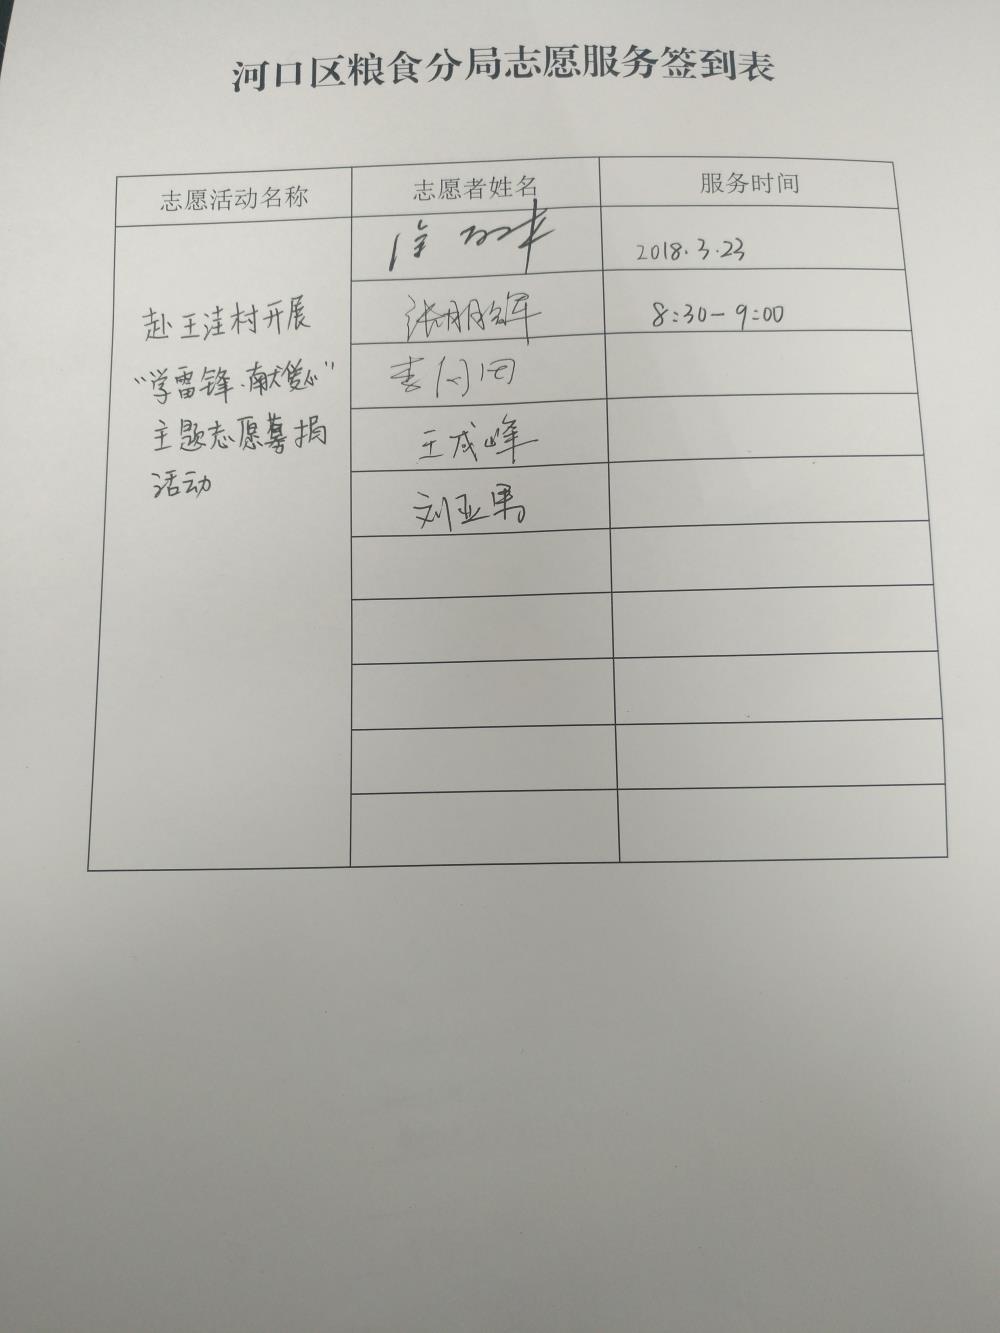 河口区粮食分局志愿服务签到表
志愿活动名称 志愿者姓名 服务时间
2018.3.23
赴王洼村开展
张朋辉 8:30-9:00
“学雷锋、献爱心”
主题志愿募捐
王成峰
活动
刘亚男